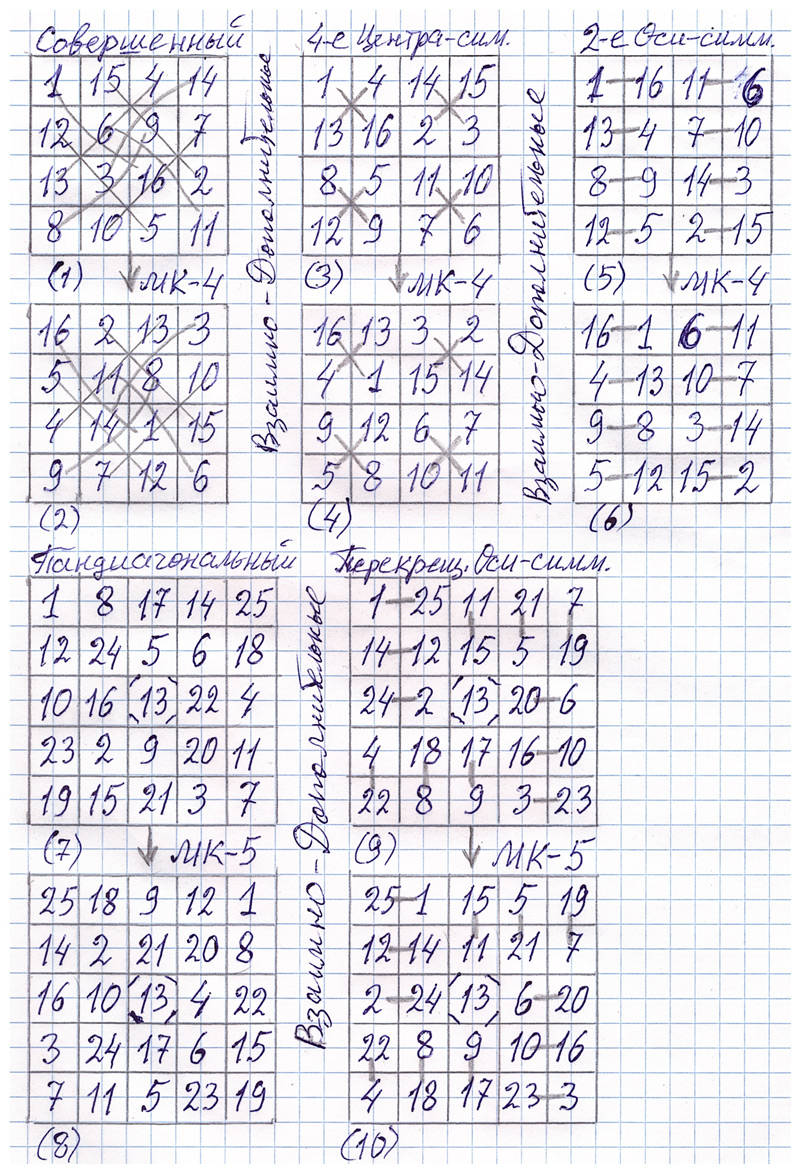 Совершенный 4-е Центра-сим. 2-е Оси-симм.
1 15 4 14
12 6 9 7
13 3 16 2
8 10 5 11
(1) МК-4
16 2 13 3
5 11 8 10
4 14 1 15
9 7 12 6
(2)
Взаимно-Дополнительные
1 4 14 15
13 16 2 3
8 5 11 10
12 9 7 6
(3) МК-4
16 13 3 2
4 1 15 14
9 12 6 7
5 8 10 11
(4)
Взаимно-Дополнительные
1 16 11 6
13 4 7 10
8 9 14 3
12 5 2 15
(5) МК-4
16 1 6 11
4 13 10 7
9 8 3 14
5 12 15 2
(6)
Пандиагональный Перекрещ. Оси-симм.
1 8 17 14 25
12 24 5 6 18
10 16 (13) 22 4
23 2 9 20 11
19 15 21 3 7
(7) МК-5
25 18 9 12 1
14 2 21 20 8
16 10 (13) 4 22
3 24 17 6 15
7 11 5 23 19
(8)
Взаимно-Дополнительные
1 25 11 21 7
14 12 15 5 19
24 2 (13) 20 6
4 18 17 16 10
22 8 9 3 23
(9) МК-5
25 1 15 5 19
12 14 11 21 7
2 24 (13) 6 20
22 8 9 10 16
4 18 17 23 3
(10)